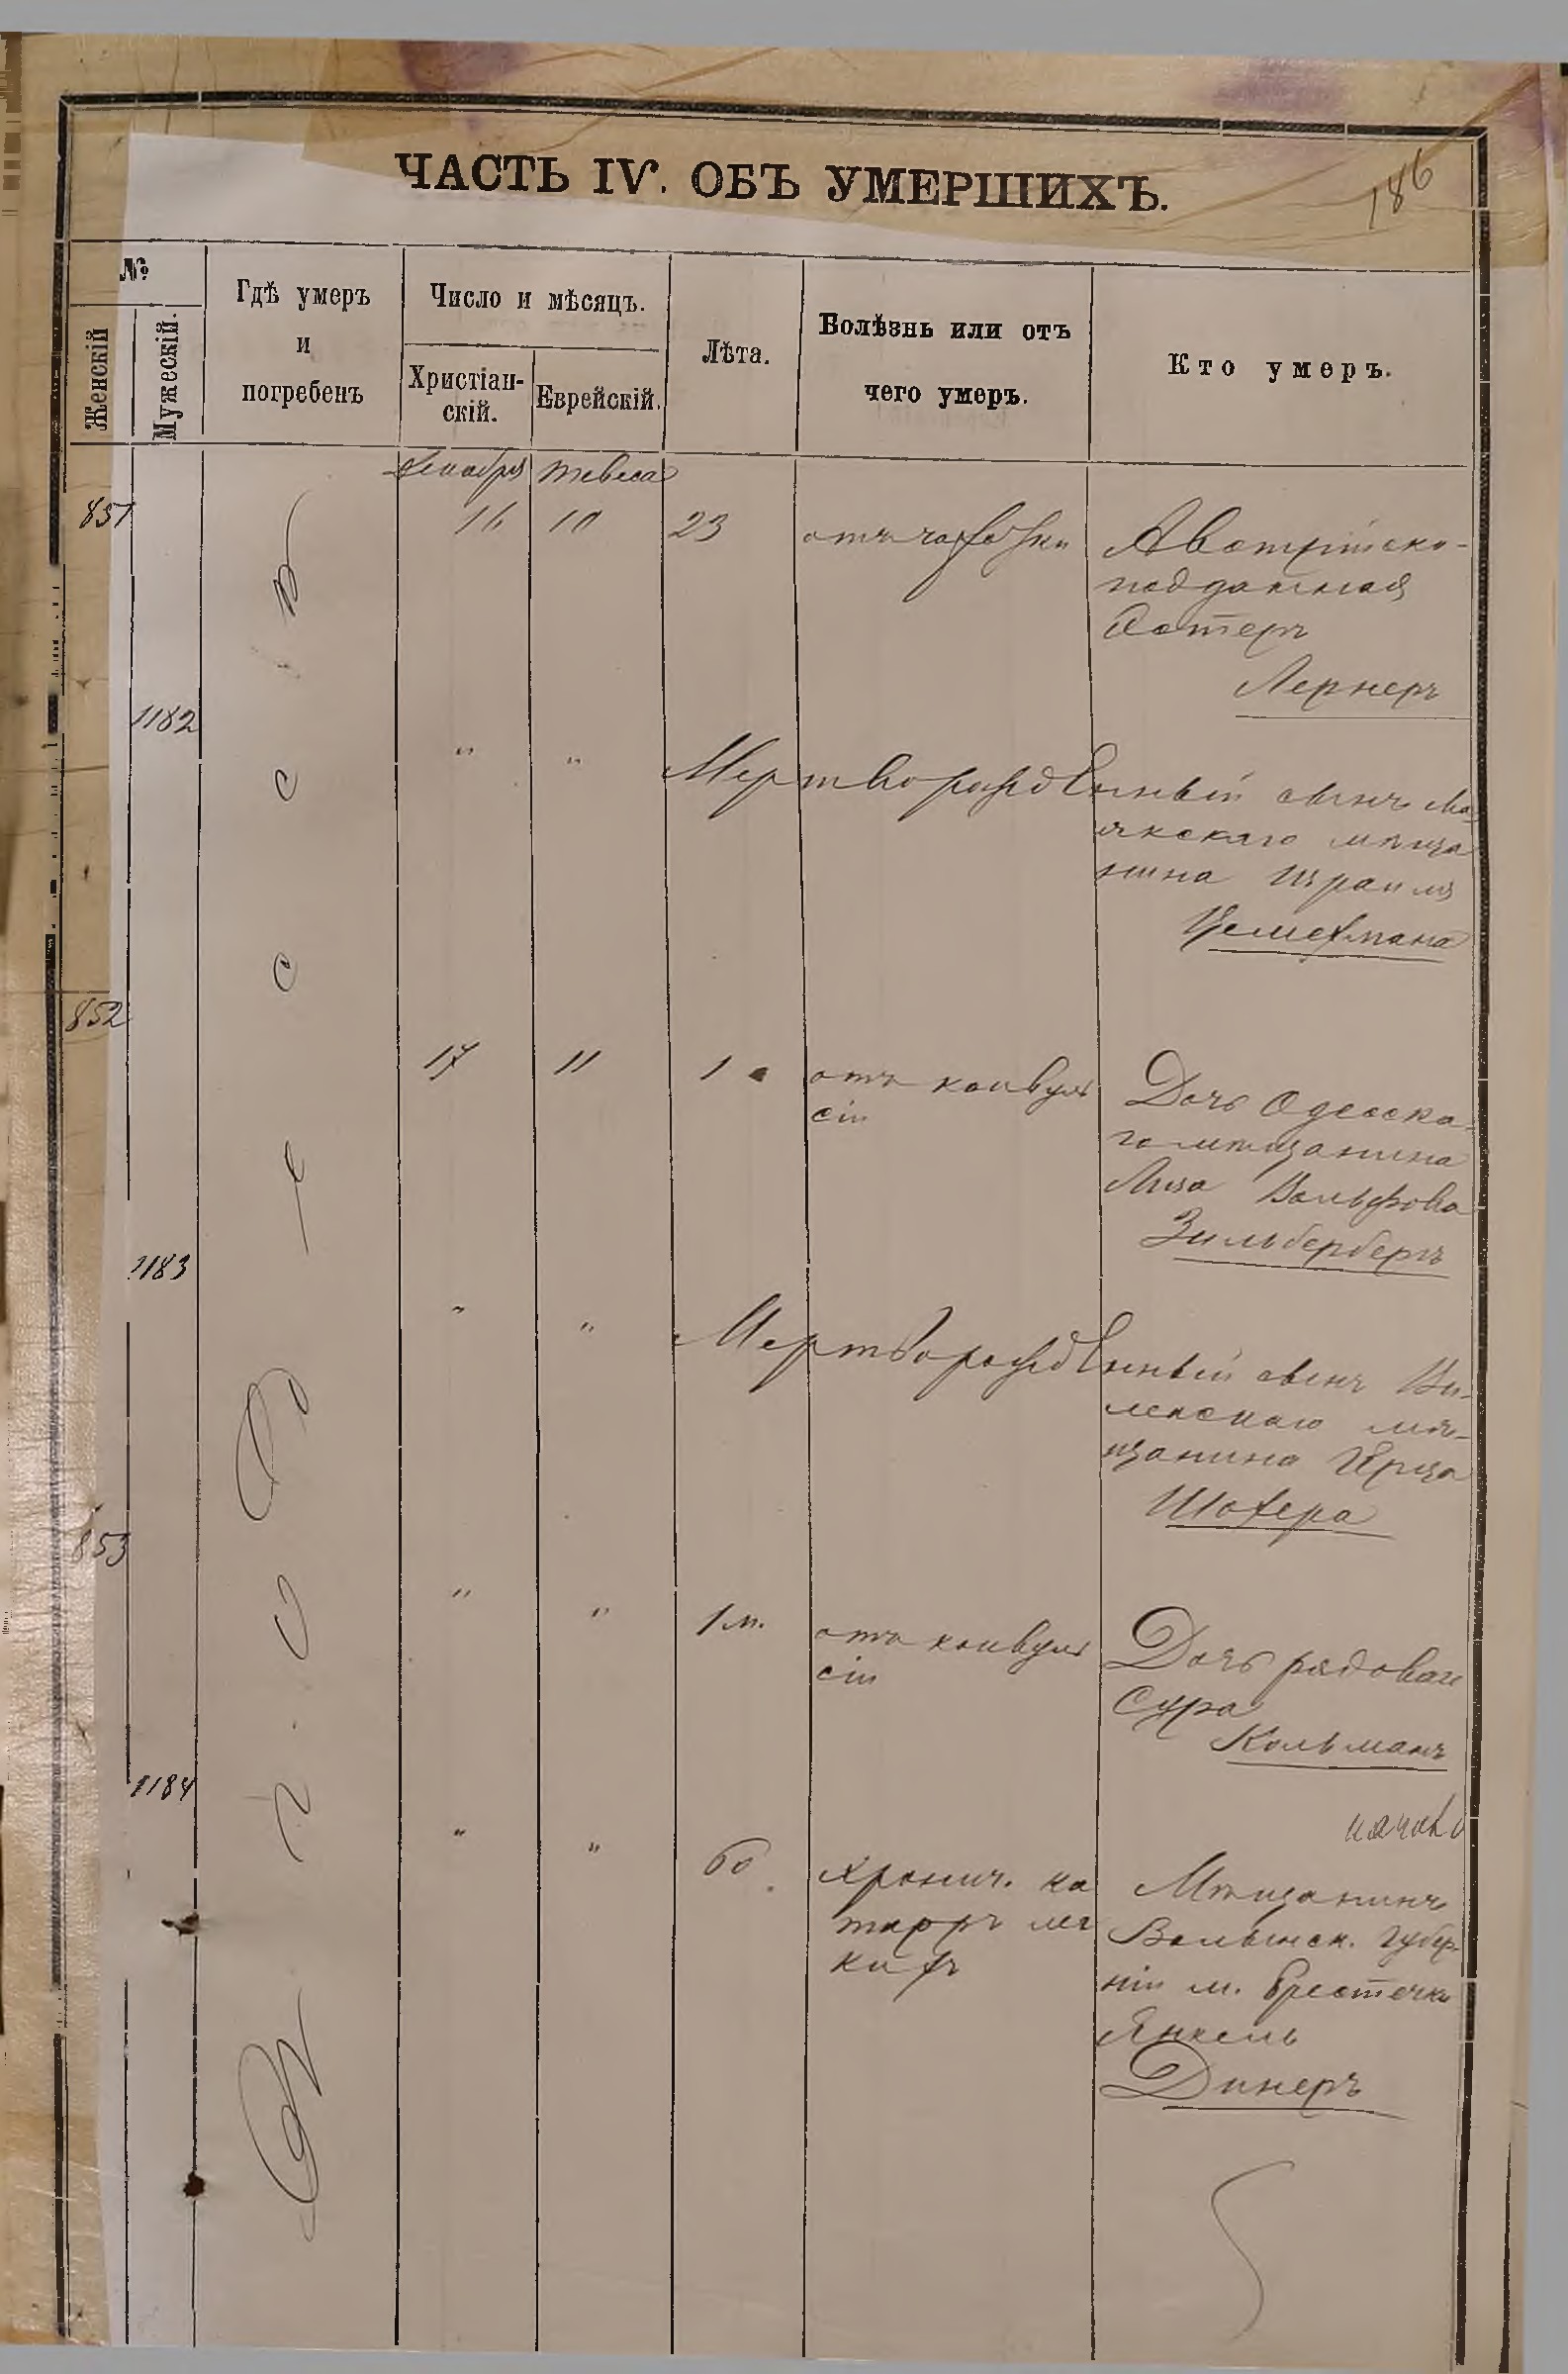 ЧАСТЬ IV. ОБЪ УМЕРШИХЪ.
186
№
Женскій
Мужескій.
Гдѣ умеръ
и
погребенъ
Число и мѣсяцъ.
Христіан-
скій.
Еврейскій.
Лѣта.
Болѣзнь или отъ
чего умеръ.
Кто умеръ.
Декабря Тевеса
851 16 10 23 отъ чахотки Австрійско-
подданная
Эстеръ
Лернеръ
1182
" " Мертворожденный сынъ Мо
якскаго мѣща
нина Израиля
Цемехмана
852
17 11 1 отъ конвуль
сіи
Дочь Одесска-
го мѣщанина
Лиза Вольфова
Зильбербергъ
1183
" " Мертворожденный сынъ Ви-
ленскаго мѣ-
щанина Ерша
Шохера
853
" " 1 м. отъ конвуль
сіи
Дочь рядоваго
Сура
Кольманъ
1184
" " 60 Хронич. ка
тарръ лег
кихъ
Мѣщанинъ
Волынск. губер-
ніи м. Брестечка
Янкель
Динеръ
Одесса